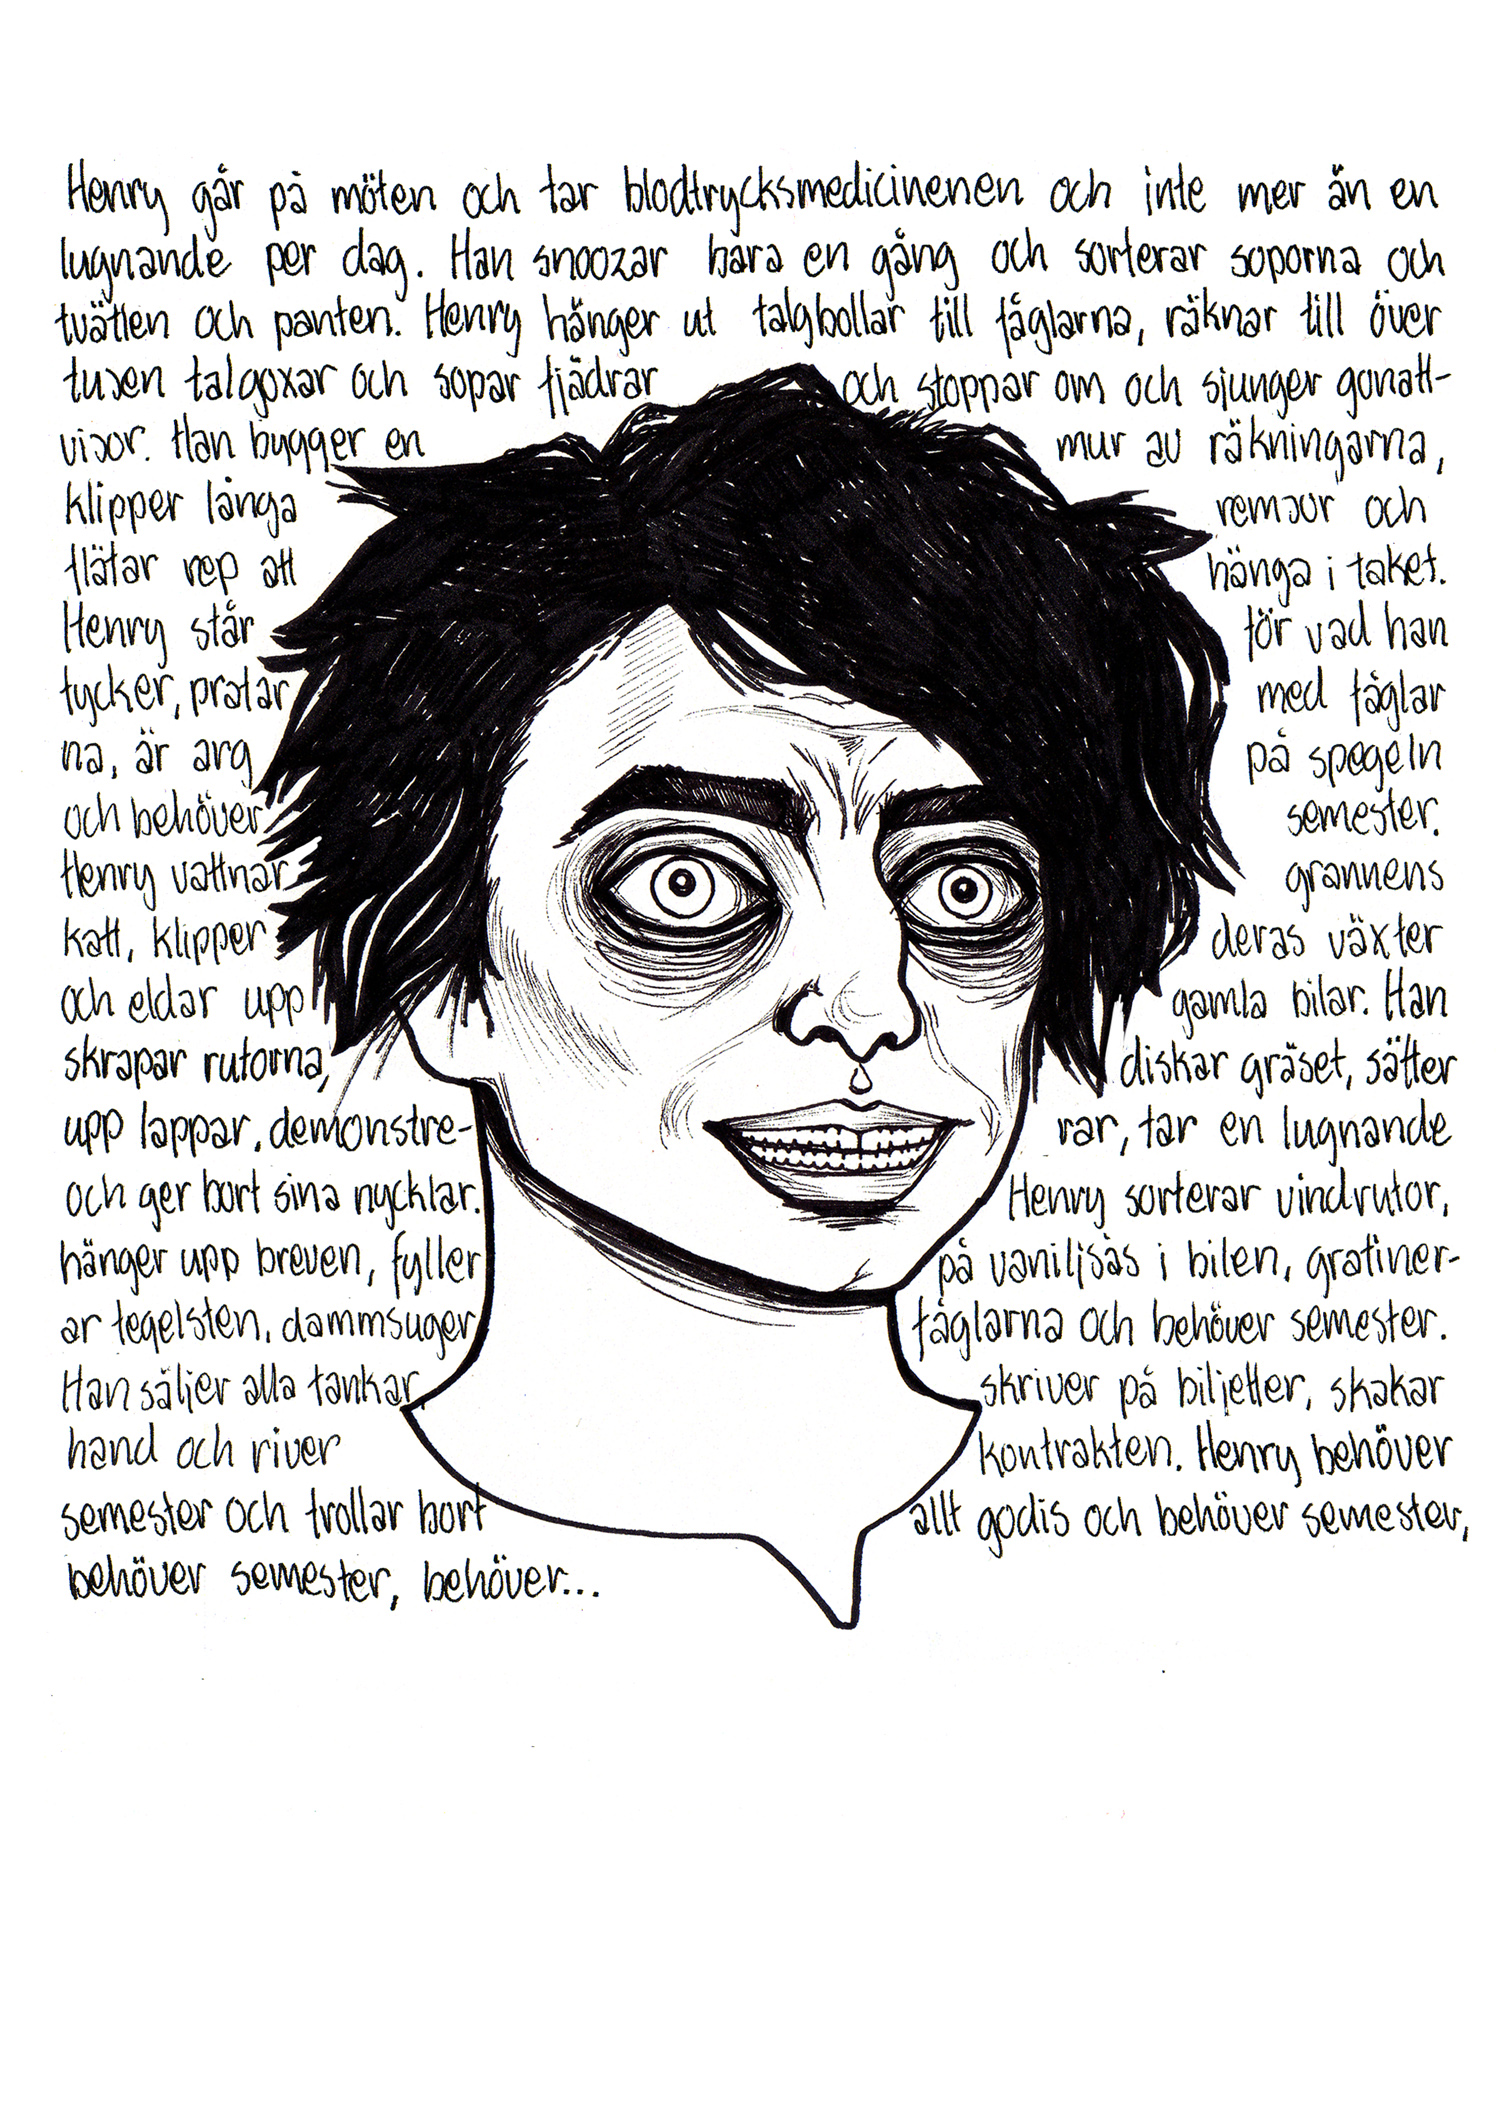 Henry går på möten och tar blodtrycksmedicinenen och inte mer än en
lugnande per dag. Han snoozar bara en gång och sorterar soporna och
tvätten och panten. Henry hänger ut talgbollar till fåglarna, räknar till över
tusen talgoxar och sopar fjädrar och stoppar om och sjunger gonatt-
visor. Han bygger en mur av räkningarna,
klipper långa remsor och
flätar rep att hänga i taket.
Henry står för vad han
tycker, pratar med fåglar
na, är arg på spegeln
och behöver semester.
Henry vattnar grannens
katt, klipper deras växter
och eldar upp gamla bilar. Han
skrapar rutorna, diskar gräset, sätter
upp lappar, demonstre- rar, tar en lugnande
och ger bort sina nycklar. Henry sorterar vindrutor,
hänger upp breven, fyller på vaniljsås i bilen, gratiner-
ar tegelsten, dammsuger fåglarna och behöver semester.
Han säljer alla tankar, skriver på biljetter, skakar
hand och river kontrakten. Henry behöver
semester och trollar bort allt godis och behöver semester,
behöver semester, behöver...